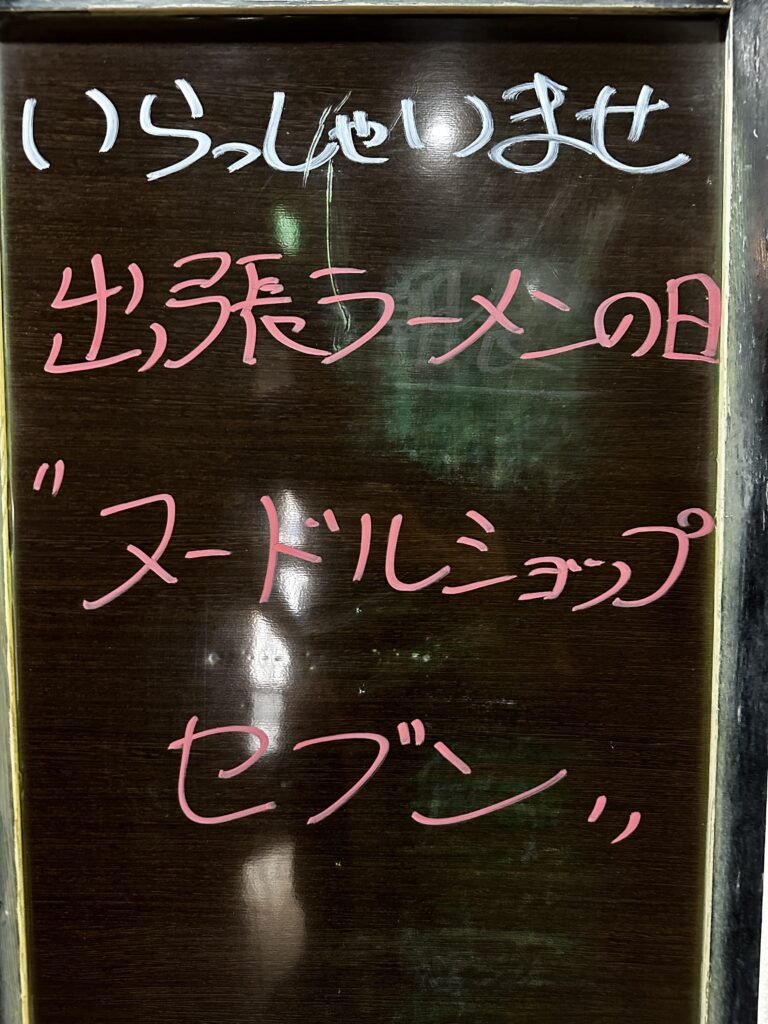 いらっしゃいませ
出張ラーメンの日
"ヌードルショップ
セブン"